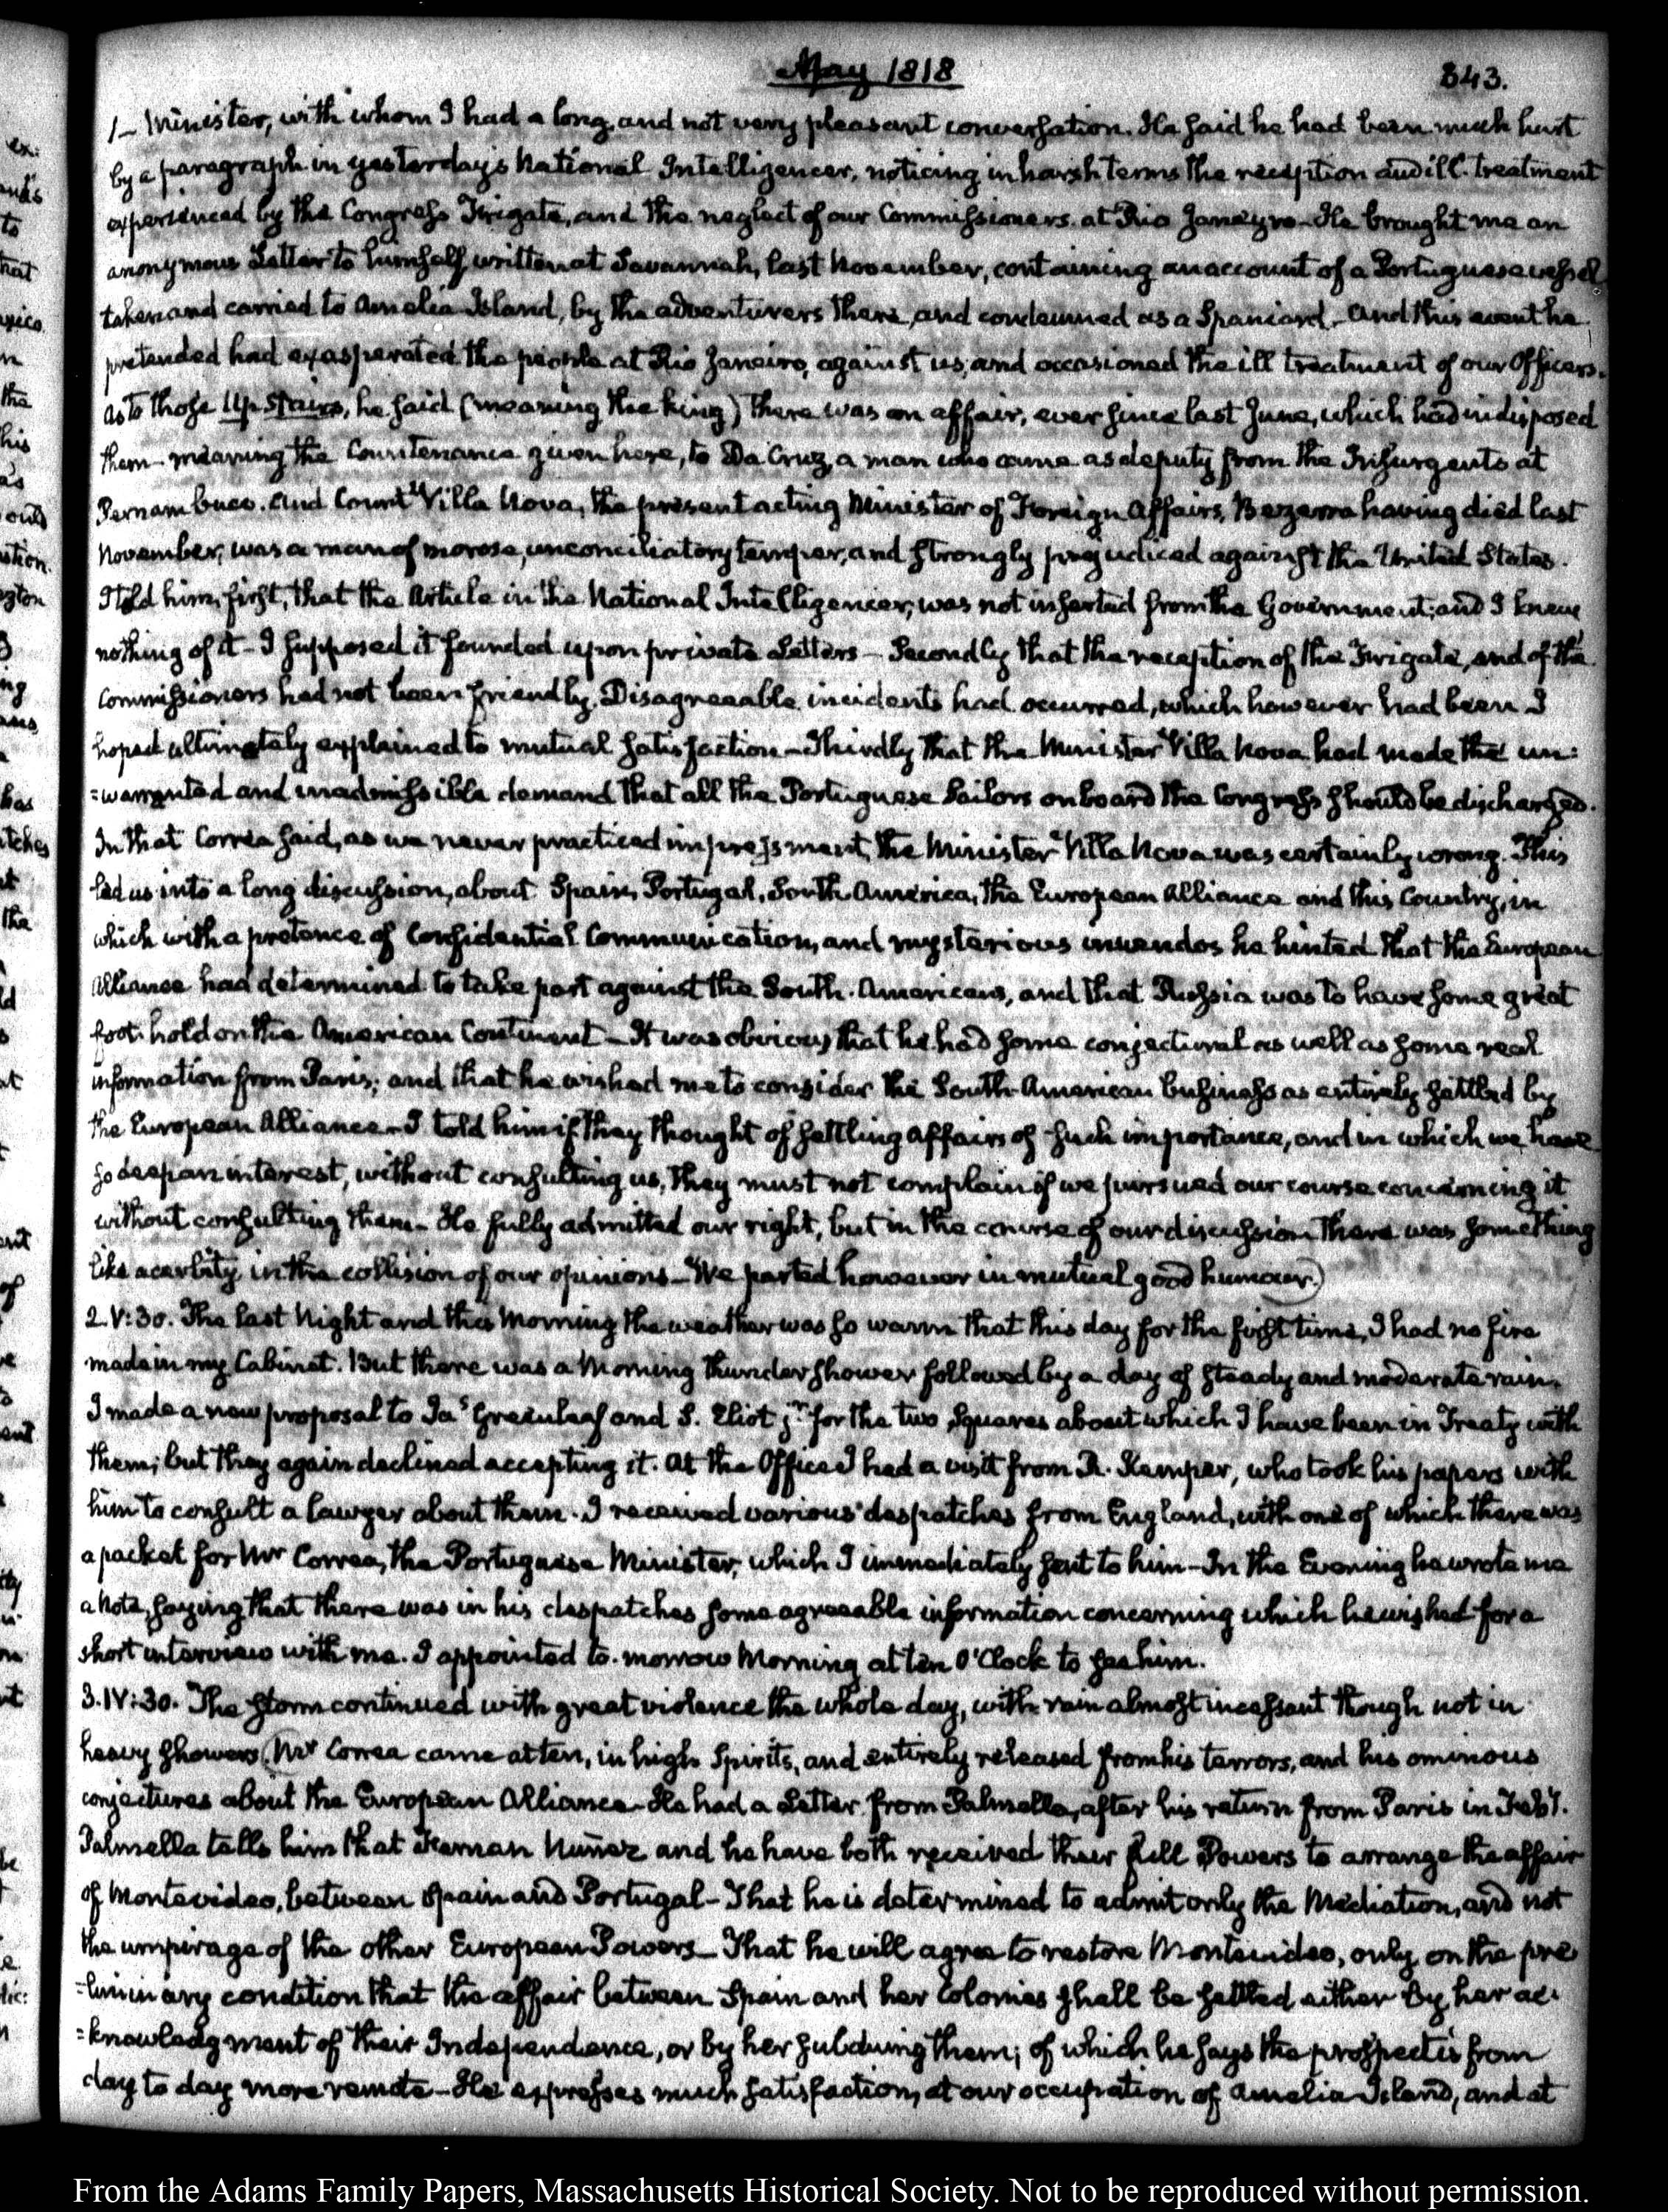 May 1818
343.
1— Minister, with whom I had a long, and not very pleasant conversation. He said he had been much hurt
by a paragraph in yesterday's National Intelligencer, noticing in harsh terms the reception and ill-treatment
experienced by the Congress Frigate, and the neglect of our Commissioners at Rio Janeyro— He brought me an
anonymous Letter to himself written at Savannah, last November, containing an account of a Portuguese vessel
taken and carried to Amelia Island, by the adventurers there, and condemned as a Spaniard.— And this event he
pretended had exasperated the people at Rio Janeiro, against us, and occasioned the ill treatment of our Officers.
As to those Up Stairs, he said (meaning the king) there was an affair, ever since last June, which had indisposed
them— meaning the Countenance given here, to Da Cruz, a man who came as deputy from the Insurgents at
Pernambuco. And Count Villa Nova, the present acting Minister of Foreign Affairs, Bezerra having died last
November, was a man of morose, unconciliatory temper, and strongly prejudiced against the United States.
I told him, first, that the Article in the National Intelligencer, was not inserted from the Government; and I knew
nothing of it— I supposed it founded upon private Letters— Secondly that the reception of the Frigate, and of the
Commissioners had not been friendly. Disagreeable incidents had occurred, which however had been I
hoped ultimately explained to mutual satisfaction— Thirdly that the Minister Villa Nova had made the un:
=warranted and inadmissible demand that all the Portuguese Sailors on board the Congress should be discharged.
In that Correa said, as we never practiced impressment, the Minister Villa Nova was certainly wrong. This
led us into a long discussion, about Spain, Portugal, South America, the European Alliance and this Country, in
which with a pretence of Confidential Communication, and mysterious inuendos he hinted that the European
Alliance had determined to take part against the South-Americans, and that Russia was to have some great
foot-hold on the American Continent— It was obvious that he had some conjectural as well as some real
information from Paris; and that he wished me to consider the South-American business as entirely settled by
the European Alliance— I told him if they thought of settling affairs of such importance, and in which we have
so deep an interest, without consulting us, they must not complain if we pursued our course concerning it
without consulting them— He fully admitted our right, but in the course of our discussion there was something
like acerbity in the collision of our opinions— We parted however in mutual good humour.)
2. V:30. The last Night and this Morning the weather was so warm that this day for the first time, I had no fire
made in my Cabinet. But there was a Morning thunder shower followed by a day of steady and moderate rain.
I made a new proposal to Jas Greenleaf and S. Eliot jr for the two Squares about which I have been in Treaty with
them; but they again declined accepting it. At the Office I had a visit from R. Kemper, who took his papers with
him to consult a lawyer about them. I received various despatches from England, with one of which there was
a packet for Mr Correa, the Portuguese Minister, which I immediately sent to him— In the Evening he wrote me
a Note, saying that there was in his despatches some agreeable information concerning which he wished for a
short interview with me. I appointed to-morrow Morning at ten O'Clock to see him.
3. IV:30. The storm continued with great violence the whole day, with rain almost incessant though not in
heavy showers (Mr Correa came at ten, in high Spirits, and entirely released from his terrors, and his ominous
conjectures about the European Alliance— He had a Letter from Palmella, after his return from Paris in Feby.
Palmella tells him that Fernan Nuñez and he have both received their full Powers to arrange the affair
of Montevideo, between Spain and Portugal— That he is determined to admit only the Mediation, and not
the umpirage of the other European Powers— That he will agree to restore Montevideo, only on the pre
=liminary condition that the affair between Spain and her Colonies shall be settled either by her ac:
=knowledgment of their Independence, or by her subduing them; of which he says the prospect is from
day to day more remote— He expresses much satisfaction, at our occupation of Amelia Island, and at
From the Adams Family Papers, Massachusetts Historical Society. Not to be reproduced without permission.